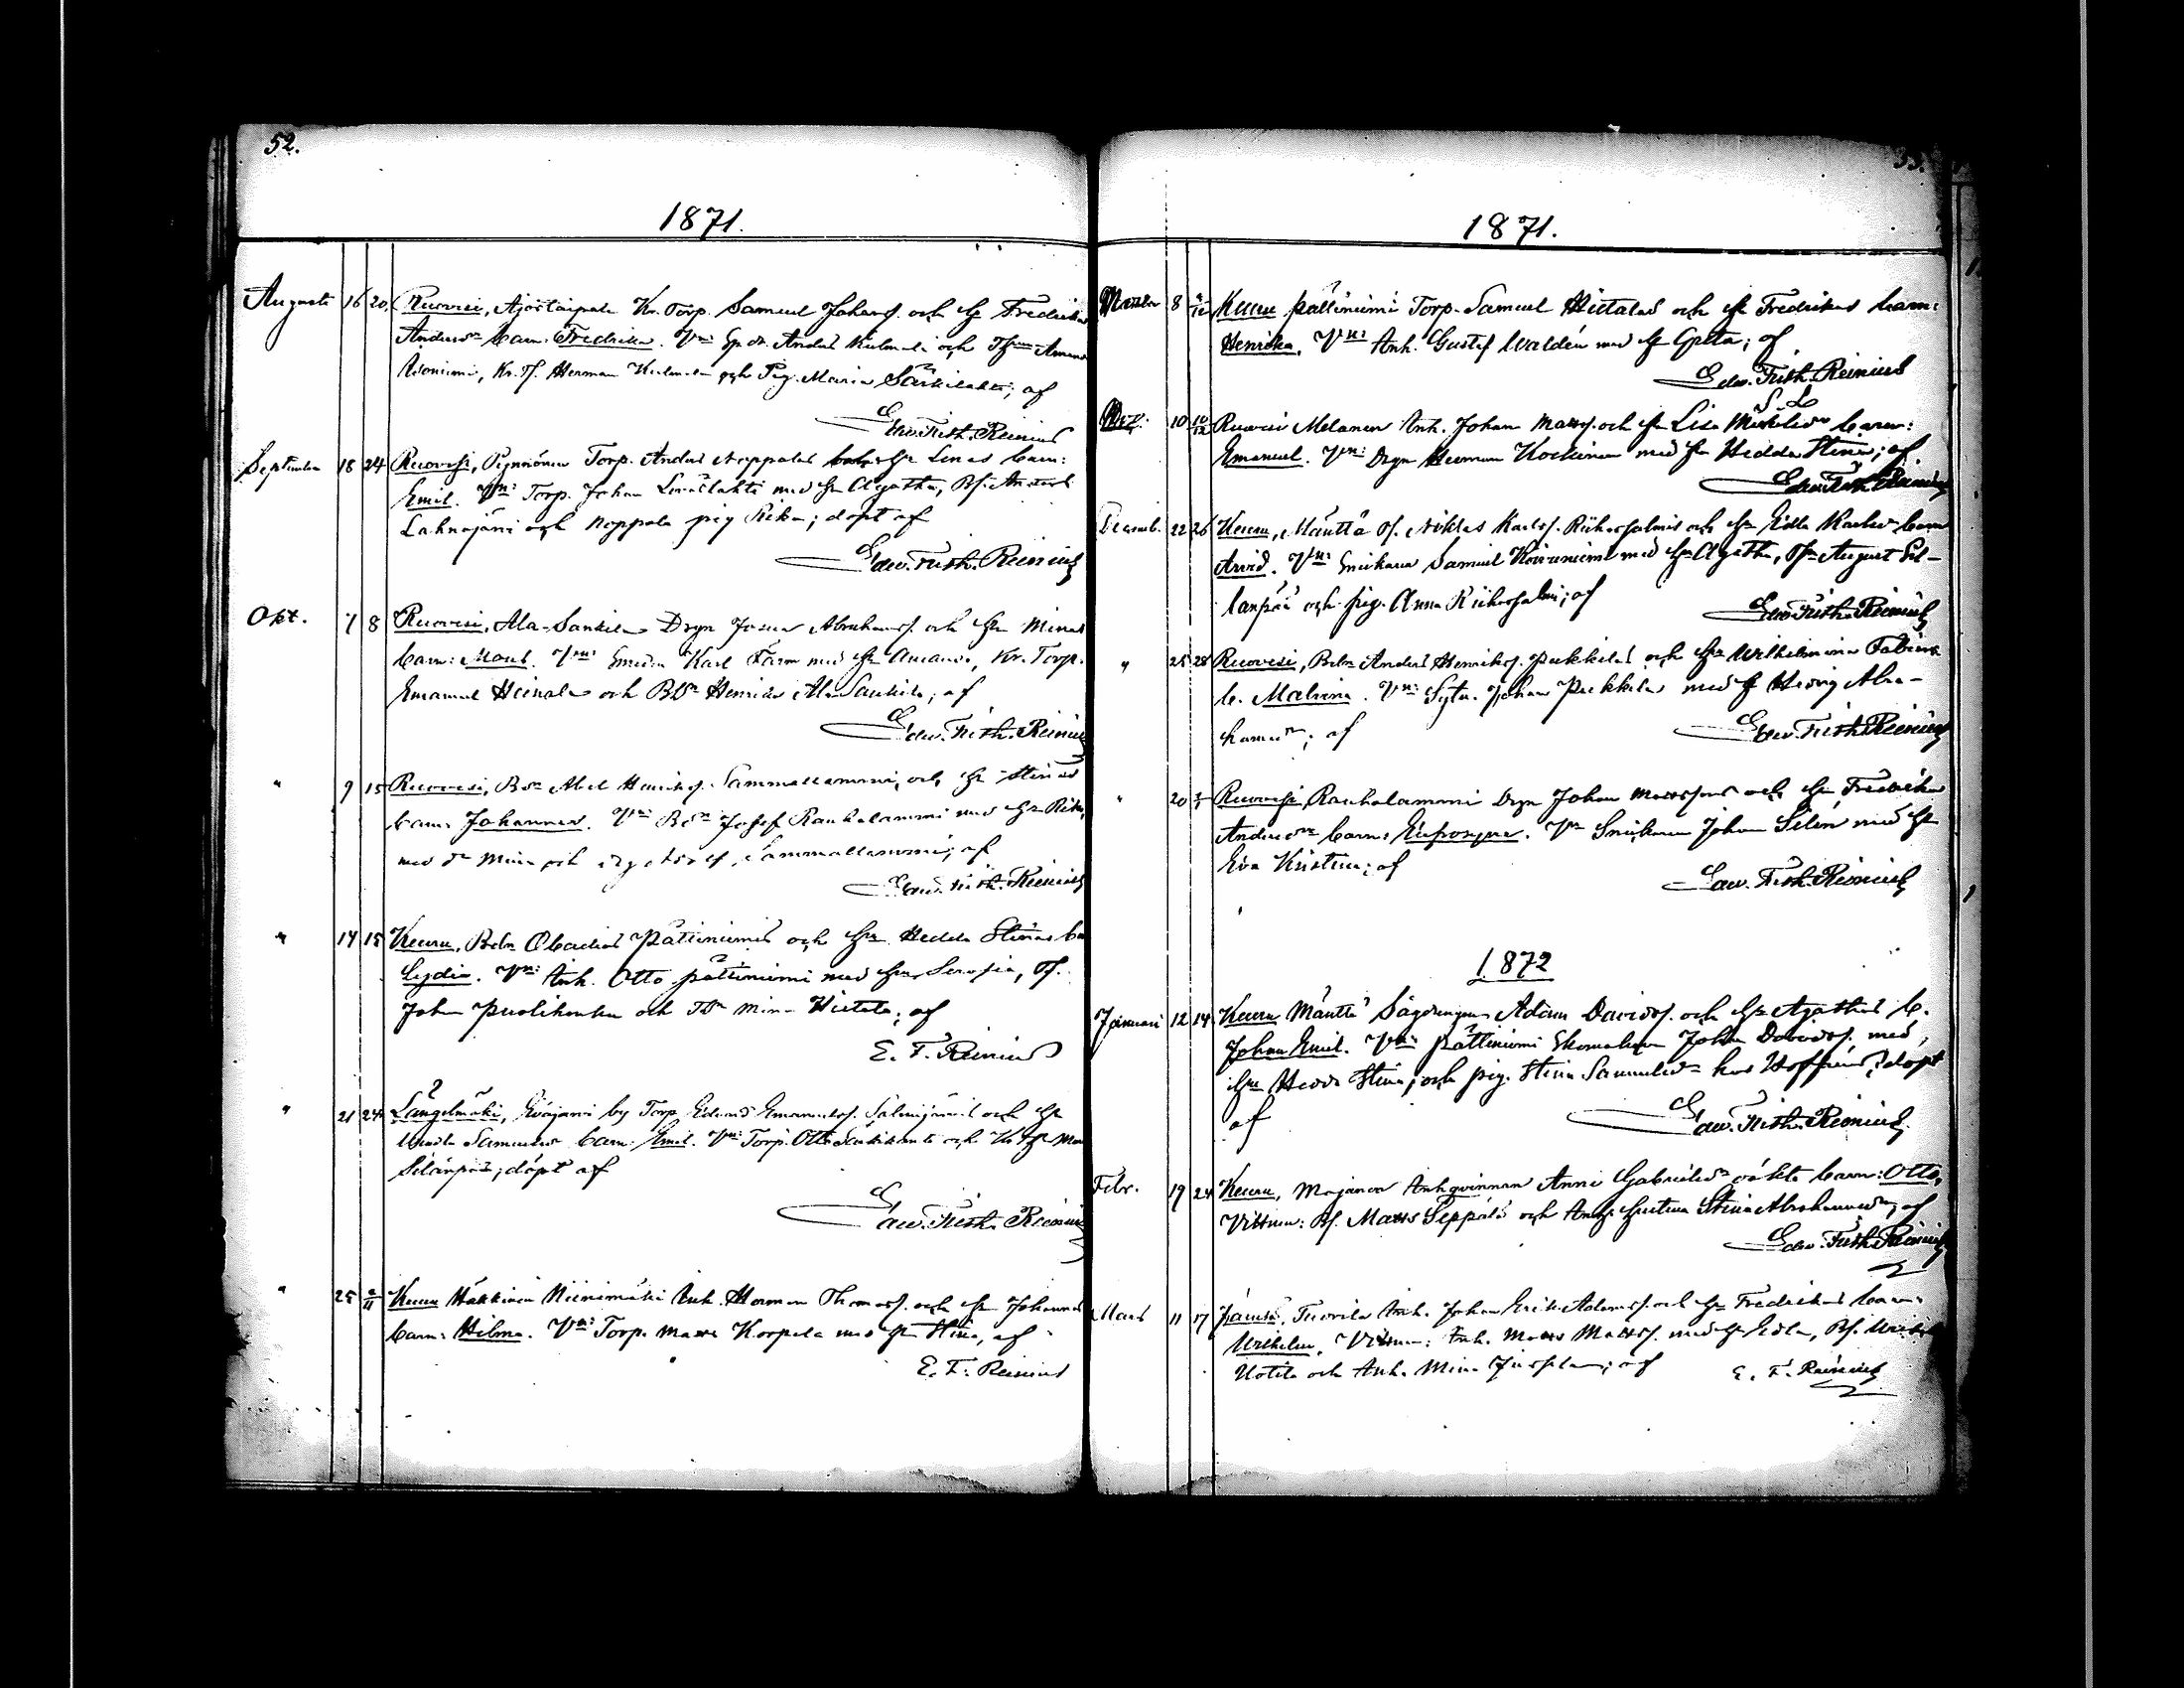 52.
1871.
Augusti 16 20. Ruovesi, Ajostaipale Kr. Torp. Samuel Johans. och Hu Fredrika
Andersdr barn: Fredrika. Vn: Anders Kulmala och
Kr. Tf. Herman Kulmala och Pig. Maria Särkilahti; af
Edw. Frith. Reinius
September 18 24 Ruovesi, Pynnönen Torp. Anders Noppalas Hu Lenas barn:
Emil. Vn: Torp. Johan Linaslahti med Hu Agatha, Bs. Anders
Lahnajärvi och Noppala pig Rika; döpt af
Edw. Frith. Reinius
Okt. 7 8 Ruovesi, Ala-Sankila Drgn Josua Abrahams. och Hu Minas
barn: Maus. Vn: Smeden Karl Färm med Hu Amanda, Kr. Torp.
Emanuel Heinola och BDr Henrika Ala Sankila; af
Edw. Frith. Reinius
" 9 15 Ruovesi, Bdn Abel Henriks. Sammallammi, och Hu Stinas
barn: Johannes. Vn: Bdn Josef Rauhalammi med Hu Rika,
med Dr Mina och Sammallammi; af
Edw. Frith. Reinius
" 14 15 Keuru, Bdn Obadias Pättiniemis och Hu Hedda Stinas ba
Lydia. Vn: Inh. Otto Pättiniemi med Hu Serafia, Tf.
Johan Puolihonka och TDr Mina Hietala; af
E. F. Reinius
" 21 24 Längelmäki, Eväjärvi by Torp. Edvard Emanuels. Salmijärvis och Hu
Samuelsdr barn: Emil. Vn: Torp. Otto Särkilahti och Kr.
Silänpää; döpt af
Edw. Frith. Reinius
" 25 2/11 Keuru Häkkinen Niinimäki Inh. Herman Thomass. och Hu Johannas
barn: Hilma. Vn: Torp. Matts Korpela med Hu Stina, af
E. F. Reinius
53.
1871.
8 Keuru Pättiniemi Torp. Samuel Hietalas och Hu Fredrikas barn:
Henrika. Vn: Inh. Gustaf Waldén med Hu Greta; af
Edw. Frith. Reinius
10 10/12 Ruovesi Melanen Inh. Johan Matss. och Hu Lisa Mickelsdr barn:
Emanuel. Vn: Drgn Herman Koskinen med Hu Hedda Stina; af
Edw. Frith. Reinius
Decemb. 22 26 Keuru, Mänttä Bs. Niklas Karls. Riihosalmis och Hu Edla Karlsdr barn
Arvid. Vn: Snickaren Samuel Koivuniemi med Hu Agatha, August Sil-
lanpää och pig. Anna Riihosalmi; af
Edw. Frith. Reinius
" 25 28 Ruovesi, Bdn Anders Henriks. Pukkilas och Hu Wilhelmina Fabians
b. Malvina. Vn: Sytn. Johan Pukkila med H Hedvig Abra-
hamsdr; af
Edw. Frith. Reinius
" 20 Ruovesi Rauhalammi Drgn Johan Matssons och Hu Fredrika
Andersdr barn: Eufrosyne. Vn Snickaren Johan Selin med Hu
Eva Kristina; af
Edw. Frith. Reinius
1872
Januari 12 14 Keuru Mänttä Sågdrengen Adam Davids. och Hu Agathas b.
Johan Emil. Vn: Pättiniemi Skomakaren Johan Davids. med
Hu Hedda Stina; och pig. Stina Samuelsdr hos Hoffrén; döpt
af
Edw. Frith. Reinius
Febr. 19 24 Keuru, Majanen Inhqvinnan Anna Gabrielsdr oäkta barn: Otto,
Vittnen: Bs. Matts Seppälä och Hustru Stina Abrahamsdr; af
Edw. Frith. Reinius
Mars 11 17 Jämsä, Tuorila Inh. Johan Erik Adams. och Hu Fredrikas barn
Wilhelm. Vittnen: Inh. Matts Matss. med Hu Edla, Bs.
Uotila och Inh. Mina Jussila; af E. F. Reinius